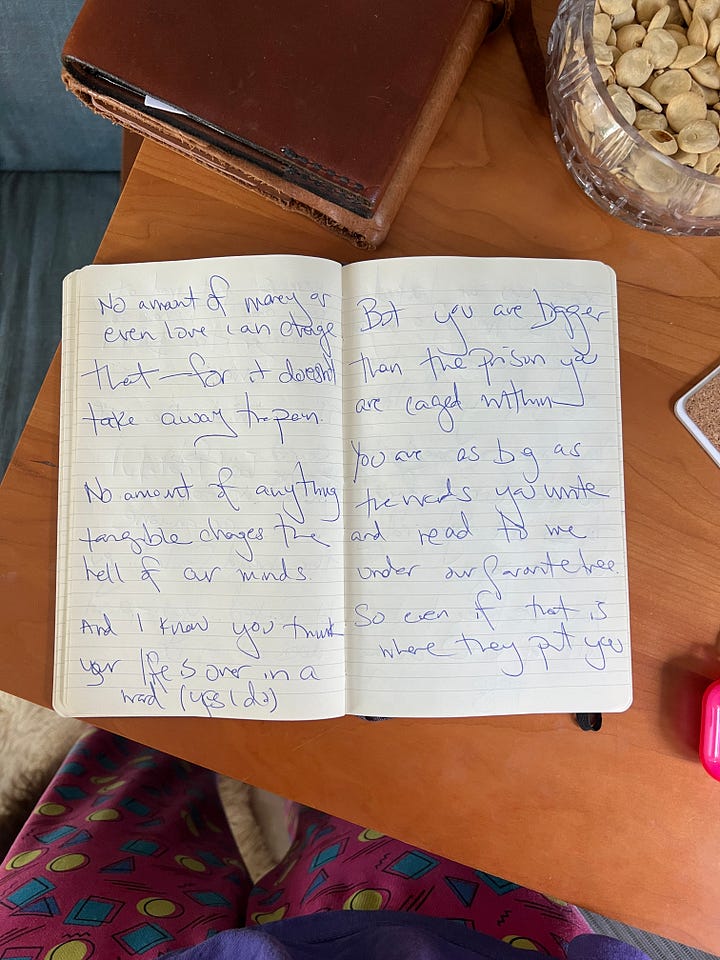 No amount of money or
even love can change
that — for it doesn't
take away the pain.
No amount of anything
tangible changes the
hell of our minds.
And I know you think
your life is over in a
ward (yes I do)
But you are bigger
than the prison you
are caged within
You are as big as
the words you write
and read to me
under our favorite tree.
So even if that is
where they put you